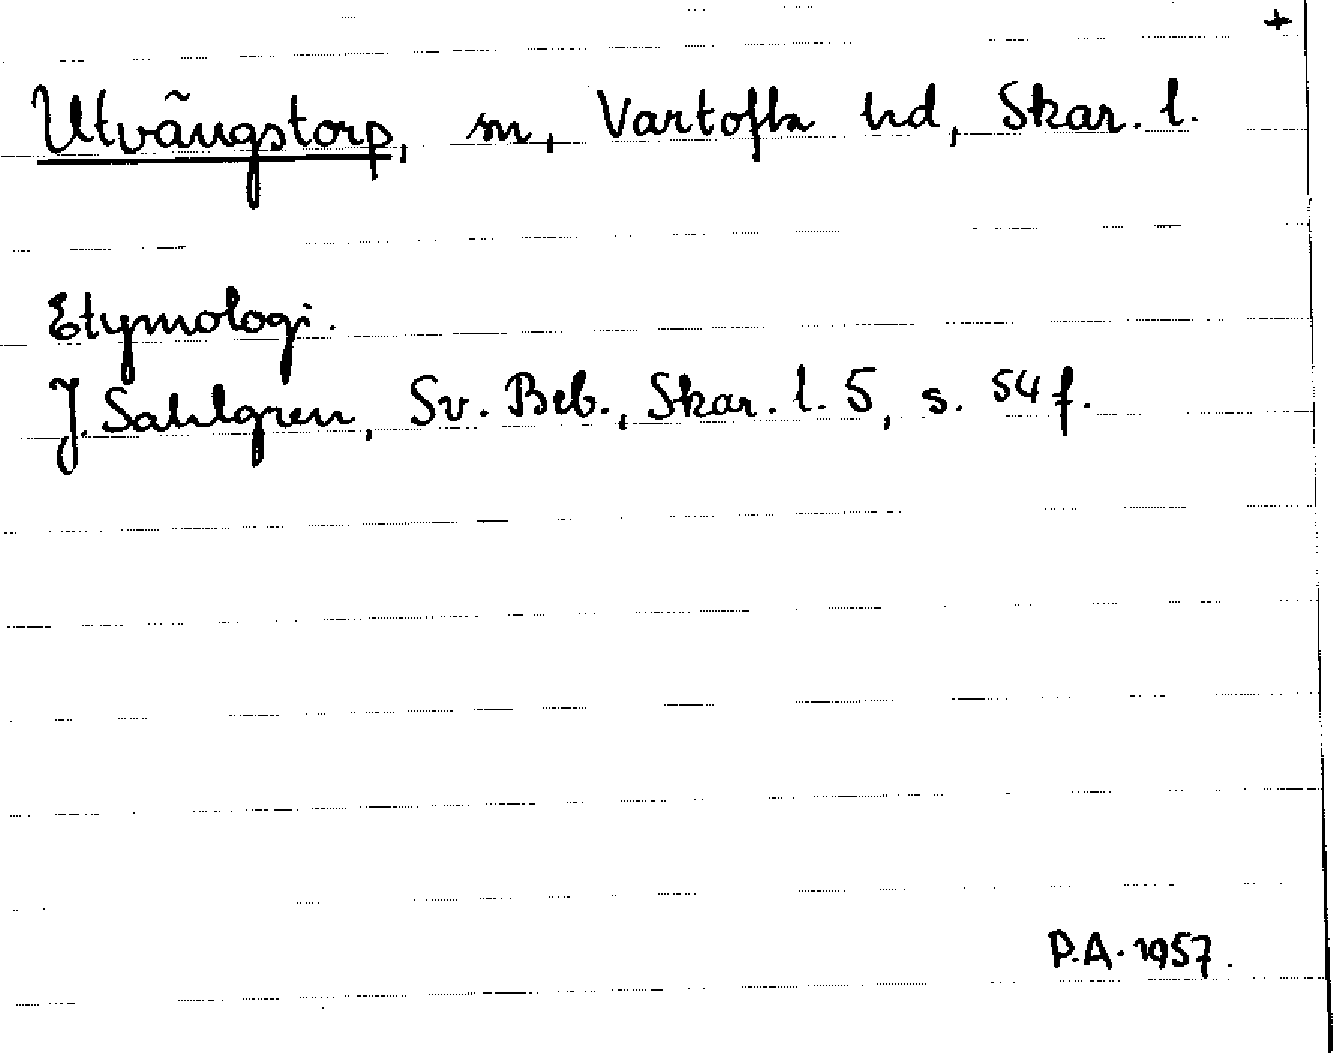 +
Utvängstorp, sn, Vartofta hd, Skar. l.
Etymologi.
J. Sahlgren, Sv. Beb., Skar. l. 5, s. 54 f.
P.A. 1957.